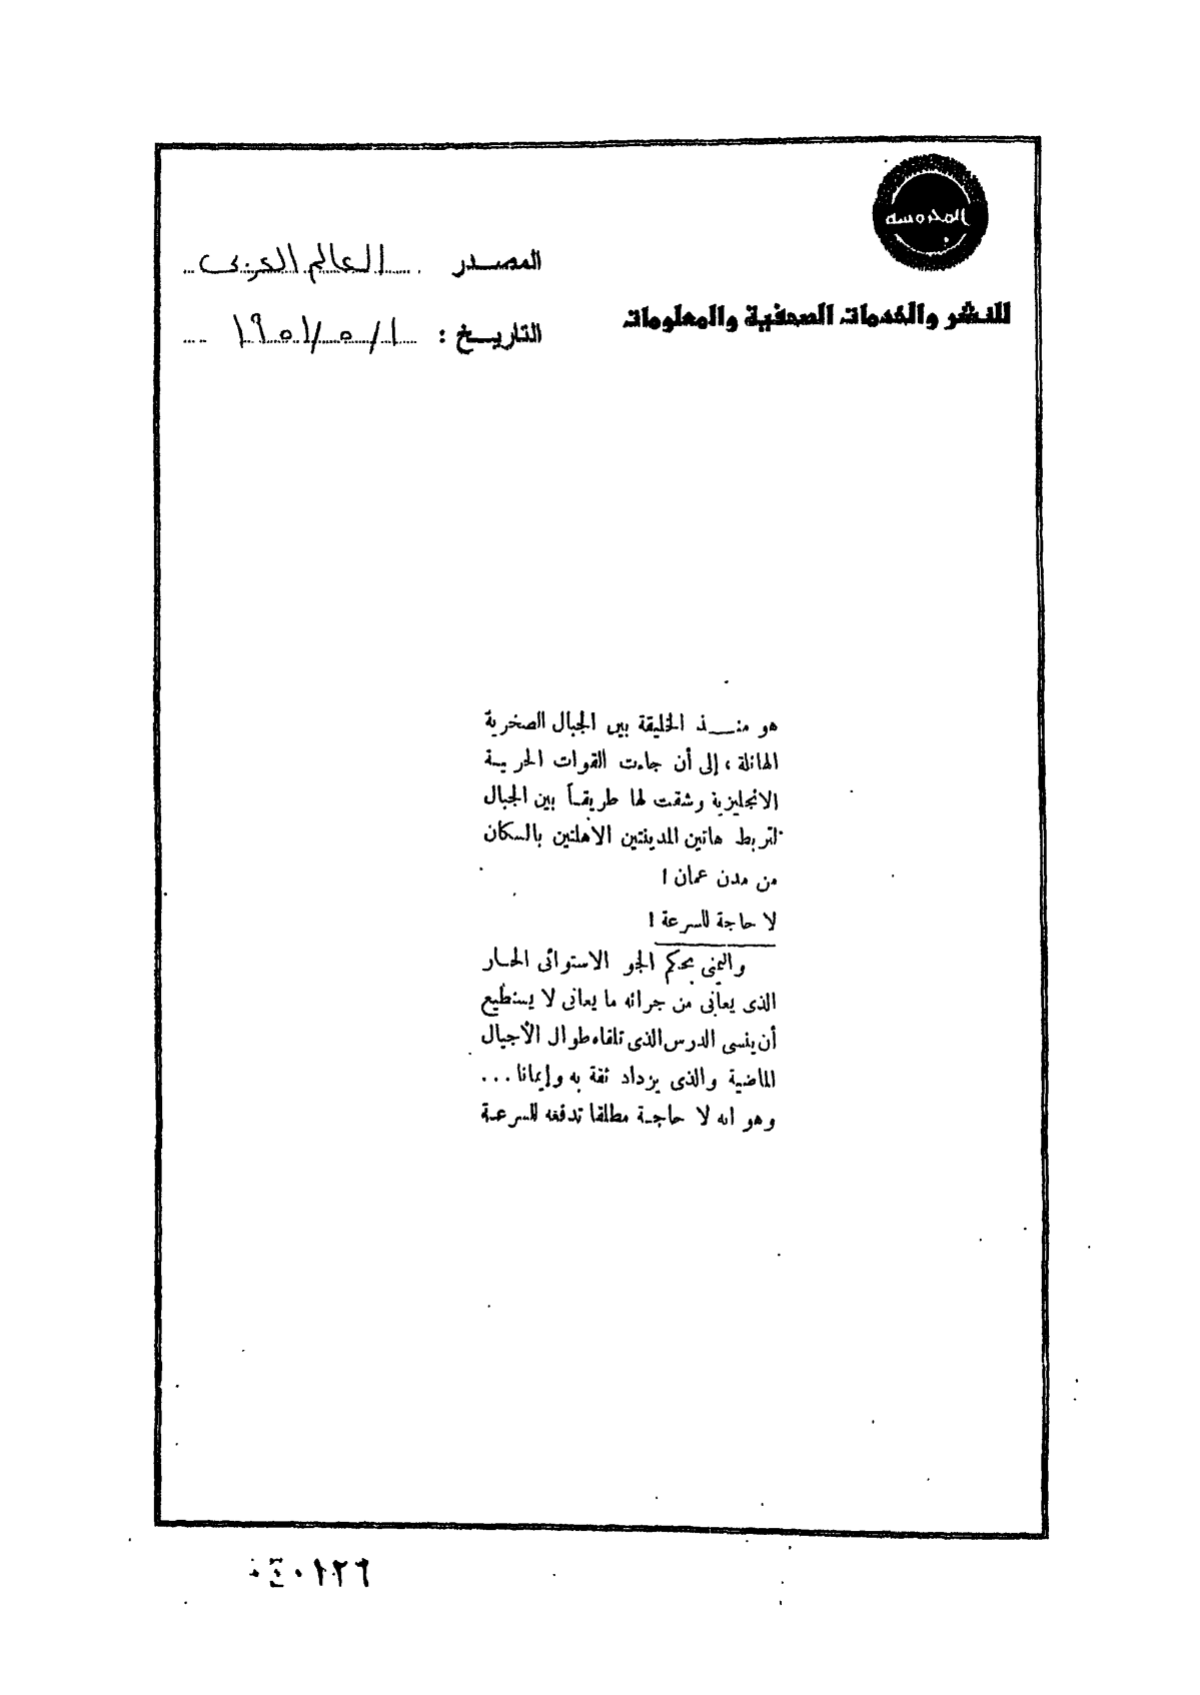 المحروسة
للنشر والخدمات الصحفية والمعلومات
المصدر العالم العربى
التاريخ : ١/٥/١٩٥١
هو منذ الخليقة بين الجبال الصخرية
الهائلة ، إلى أن جاءت القوات الحربية
الانجليزية وشقت لها طريقاً بين الجبال
لتربط هاتين المدينتين الاهلتين بالسكان
من مدن عمان !
لا حاجة للسرعة !
واليمنى بحكم الجو الاستوائى الحار
الذى يعانى من جرائه ما يعانى لا يستطيع
أن ينسى الدرس الذى تلقاه طوال الأجيال
الماضية والذى يزداد ثقة به وإيمانا ...
وهو انه لا حاجة مطلقا تدفعه للسرعة
٠٤٠١٢٦